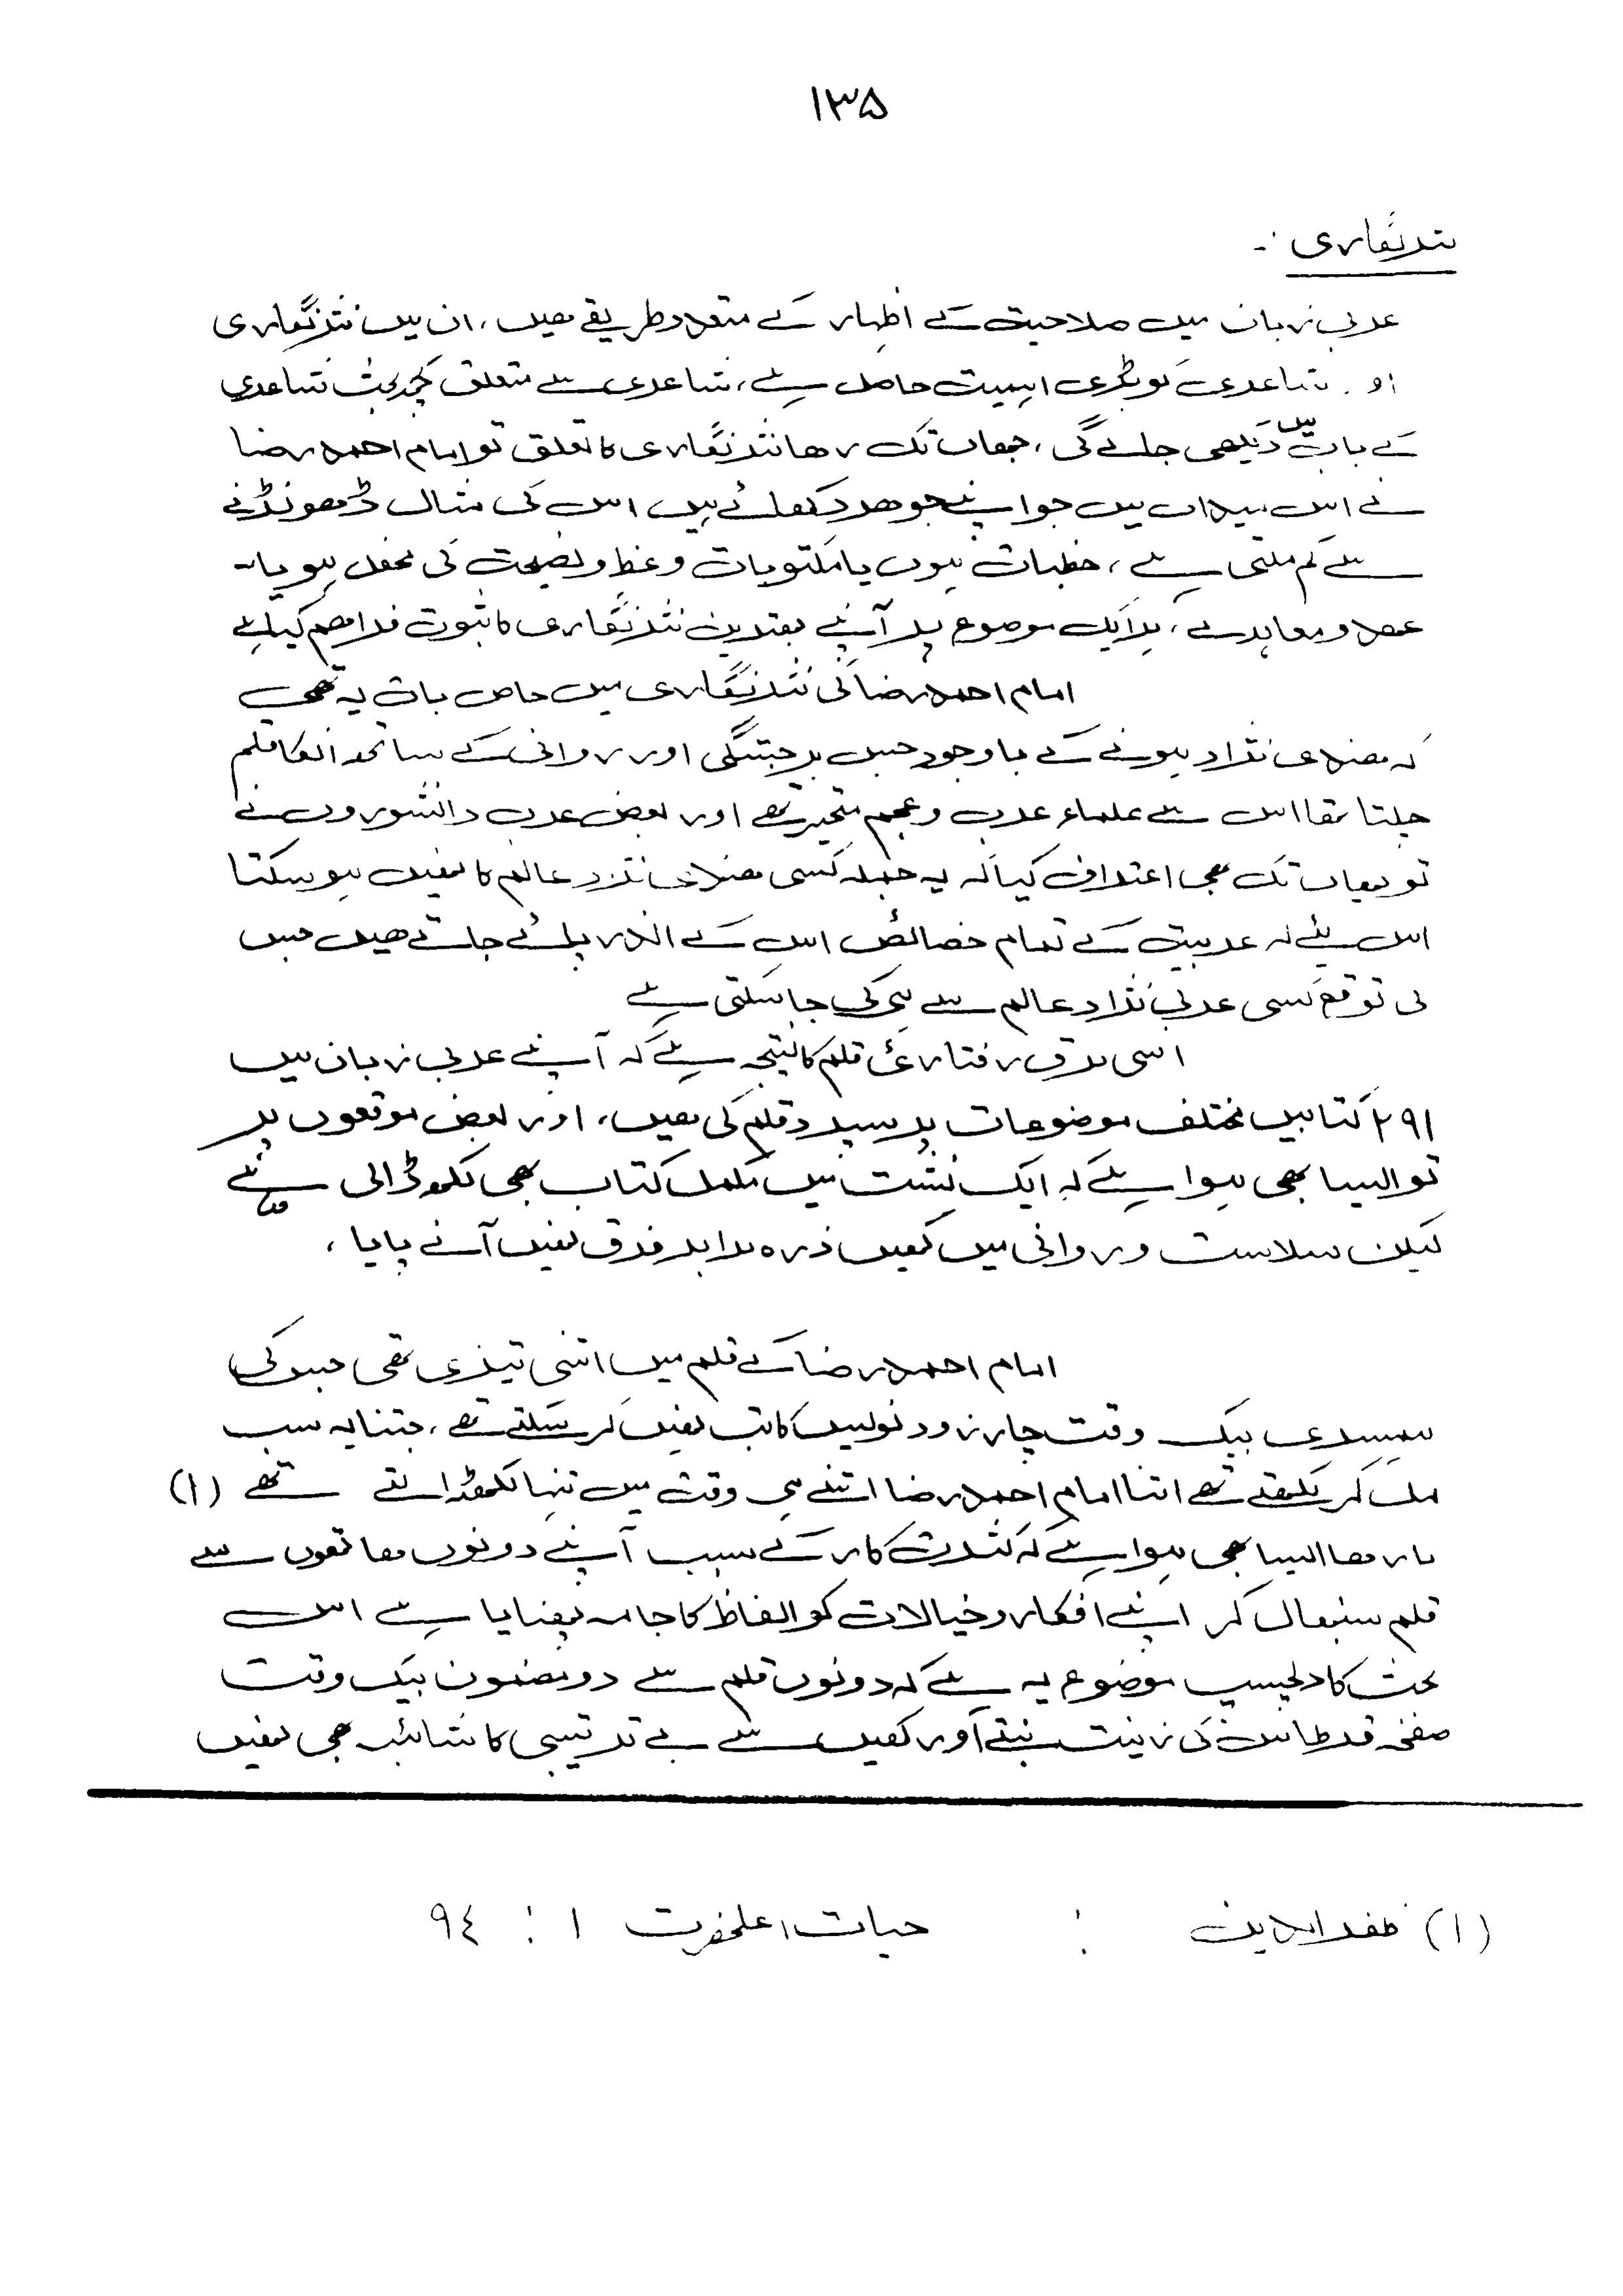 ۱۳۵
نثر نگاری :-
عربی زبان میں صلاحیت کے اظہار کے متعدد طریقے ھیں، ان میں نثر نگاری
اور شاعری کو بڑی اہمیت حاصل ہے، شاعری سے متعلق کچھ بحث شاعری
کے باب میں دیکھی جائے گی، جہاں تک رھا نثر نگاری کا تعلق تو امام احمد رضا
نے اس میدان میں جو اپنے جوھر دکھائے ہیں اس کی مثال ڈھونڈنے
سے کم ملتی ہے، خطبات ہوں یا مکتوبات وعظ و نصیحت کی محفل ہو یا
عھد و معاہدے، ہر ایک موضوع پر آپنے بھترین نثر نگاری کا ثبوت فراھم کیا ہے
امام احمد رضا کی نثر نگاری میں خاص بات یہ تھی
کہ ھندی نژاد ہونے کے باوجود جس برجستگی اور روانی کے ساتھ انکا قلم
چلتا تھا اس سے علماء عرب و عجم متحیر تھے اور بعض عرب دانشوروں نے
تو یھاں تک بھی اعتراف کیا کہ یہ جملہ کسی ھندی نژاد عالم کا نھیں ہو سکتا
اس لئے کہ عربیت کے تمام خصائص اس کے اندر پائے جاتے ھیں جس
کی توقع کسی عربی نژاد عالم سے ہی کی جا سکتی ہے
اسی برق رفتارئ قلم کا نتیجہ ہے کہ آپنے عربی زبان میں
۲۹۱ کتابیں مختلف موضوعات پر سپرد قلم کی ھیں، اور بعض موقعوں پر
تو ایسا بھی ہوا ہے کہ ایک نشست میں مکمل کتاب بھی لکھ ڈالی ہے
لیکن سلاست و روانی میں کھیں ذرہ برابر فرق نھیں آنے پایا،
امام احمد رضا کے قلم میں اتنی تیزی تھی جس کی
ھمسری بیک وقت چار زود نویس کاتب نھیں کر سکتے تھے، جتنا یہ سب
مل کر لکھتے تھے اتنا امام احمد رضا اتنے ہی وقت میں تنہا لکھ ڈالتے تھے (۱)
بارھا ایسا بھی ہوا ہے کہ کثرت کار کے سبب آپنے دونوں ھاتھوں سے
قلم سنبھال کر اپنے افکار و خیالات کو الفاظ کا جامہ پھنایا ہے اس
بحث کا دلچسپ موضوع یہ ہے کہ دونوں قلم سے دو مضمون بیک وقت
صفحہ قرطاس کی زینت بنتے اور کھیں سے بے ترتیبی کا شائبہ بھی نھیں
(۱) ظفر الدین : حیات اعلحضرت ۱ : ۹٤